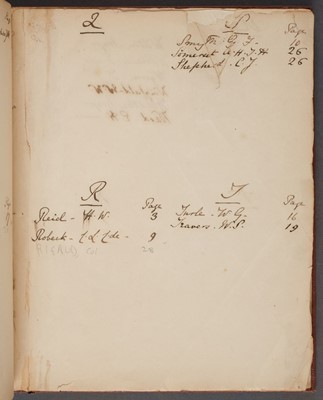 Q
S
Page
Smyth. G. J. 10
Somerset A. H. J. H 26
Shepherd. C. J 26
R
Page
Reid - H. W. 3
Robeck - C. L. C. de - 9
T
Page
Toole - W G. 16
Travers. W. S. 19